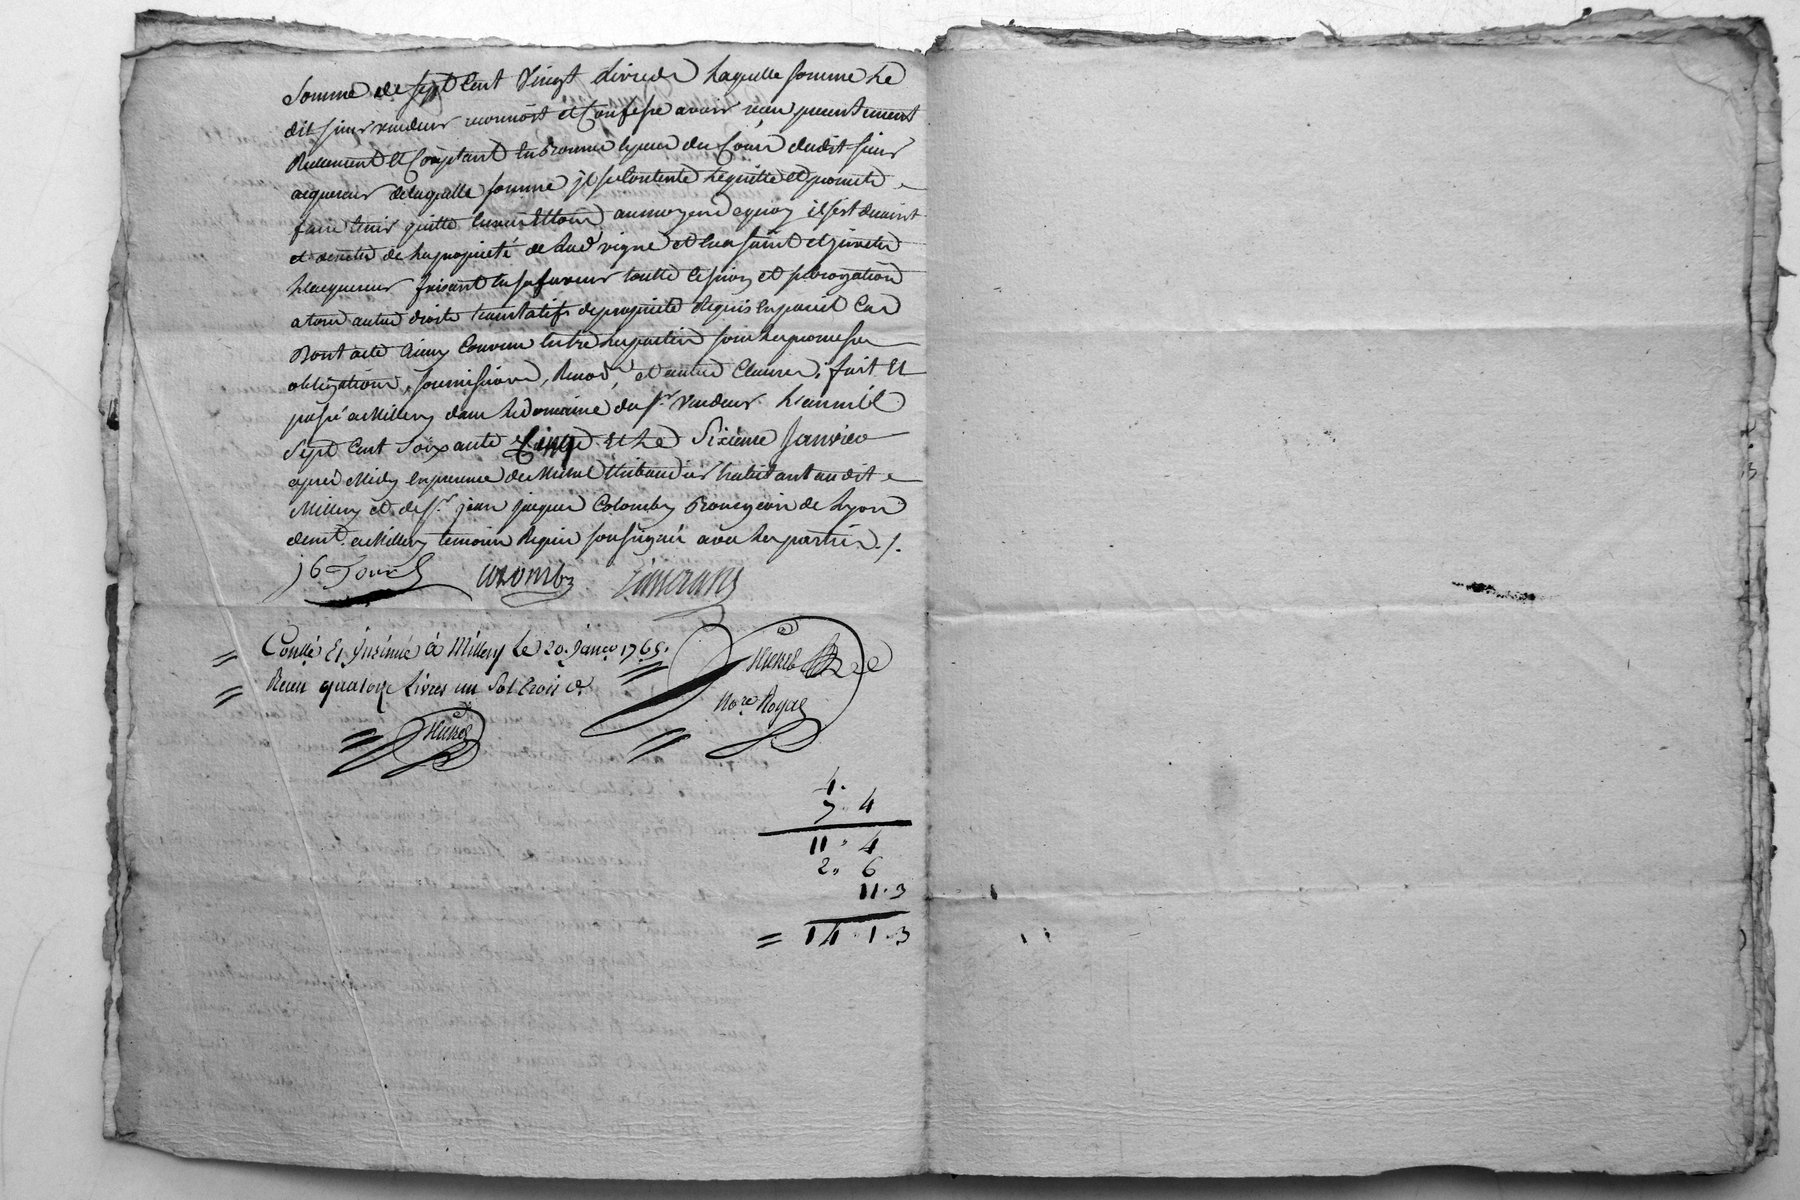 Somme de sept Cent Vingt Livres Laquelle Somme Le
dit sieur vendeur reconnoit et Confesse avoir reçu presentement
Réelement et Comptant des mains dudit sieur
acquereur de laquelle somme jl se Contente Le quitte et promets
faire tenir quitte Envers et tous au moyen de quoy il s'est devaint
et devetu de la proprieté de lad. vigne et En a saint et jnvestu
L'acquereur faisant En sa faveur toutte Cession et subrogation
a tous autres droits translatifs de proprieté requis En pareil Cas
Dont acte Ainsy Convenu Entre Les parties sous Les promesses
obligations, soumissions, Renon. et autres Clauses. fait Et
passé a Millery dans Le Domaine du Sr. Vendeur. L'an mil
Sept Cent Soixante Cinq Et Le Sixieme Janvier
apres Midy En presence de Michel Thibaudier habitant audit
Millery et de Sr. jean jacques Colomby Bourgeois de Lyon
demt. a Millery temoins Requis soussignés avec Les parties ./.
Colomby
Conllé Et jnsinué à Millery Le 20. Janer. 1765.
Receu quatorze Livres un Sol trois d.
Nore. Royal
4.
7. 4
11. 4
2. 6
11. 3
= 14. 1. 3